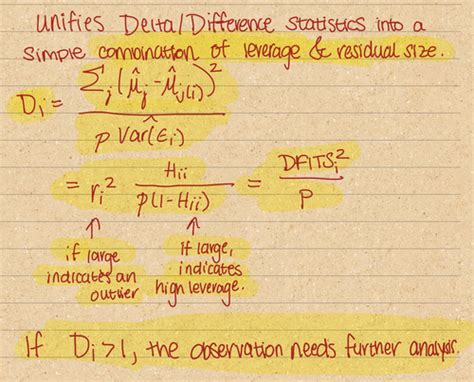 Unifies Delta/Difference statistics into a
simple combination of leverage & residual size.
Dᵢ = Σⱼ(μ̂ⱼ - μ̂ⱼ₍ᵢ₎)² / p Var̂(εᵢ)
= rᵢ² Hᵢᵢ / p(1-Hᵢᵢ) = DFITSᵢ² / p
↑ ↑
if large indicates an outlier
If large, indicates high leverage.
If Dᵢ > 1, the observation needs further analysis.